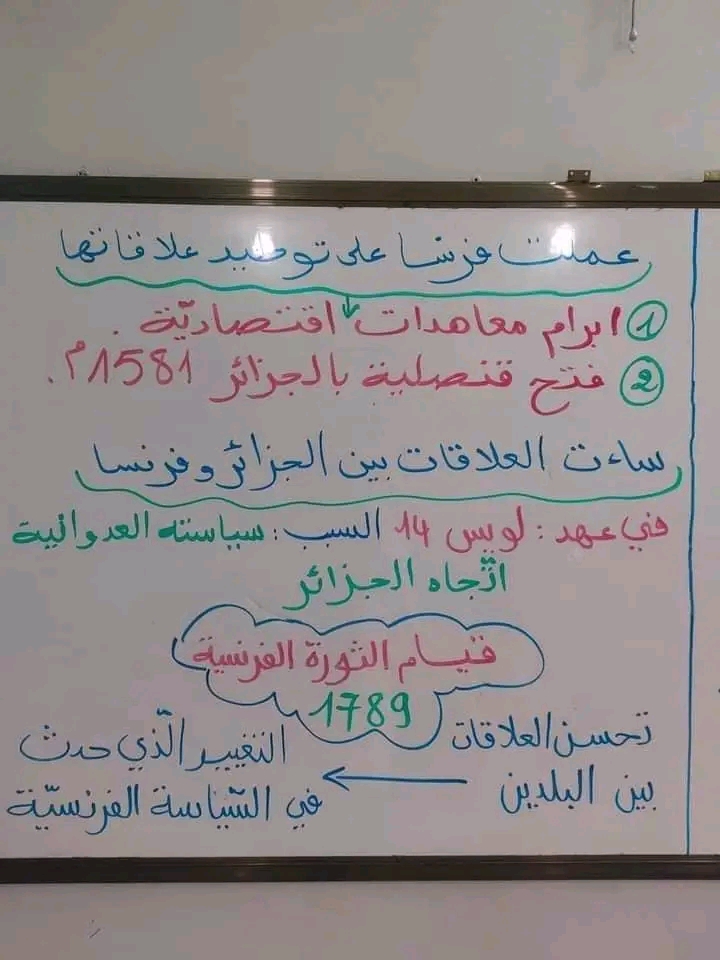 عملت فرنسا على توطيد علاقاتها
① ابرام معاهدات اقتصاديّة .
② فتح قنصلية بالجزائر 1581م.
ساءت العلاقات بين الجزائر وفرنسا
في عهد : لويس 14 السبب : سياسته العدوانية
اتّجاه الجزائر
قيام الثورة الفرنسية
1789
تحسن العلاقات
بين البلدين
←
التغيير الّذي حدث
في السّياسة الفرنسيّة